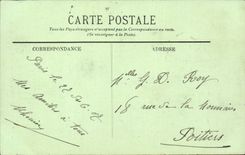 CARTE POSTALE
Tous les Pays étrangers n'acceptent pas la Correspondance au recto.
(Se renseigner à la Poste)
CORRESPONDANCE
ADRESSE
Paris le 22
à tous
Mlle G. D. Roy
18 rue de la Monnaie
Poitiers